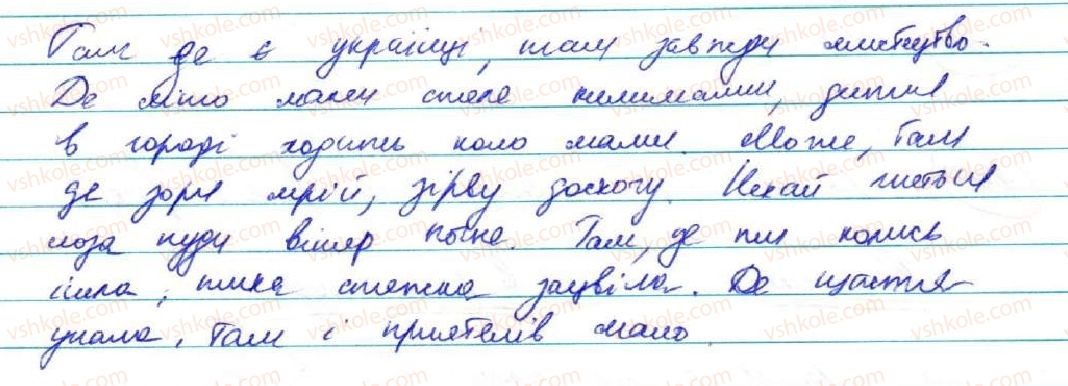 Там де є українці, там завжди мистецтво.
Де літо маки стеле килимами, дитя
в городі ходить коло мами. Може, там
де зоря мрій, зірву досхочу. Нехай гнеться
лоза куди вітер погне. Там, де ти колись
ішла, тиха стежка зацвіла. Де щастя
упало, там і приятелів мало.